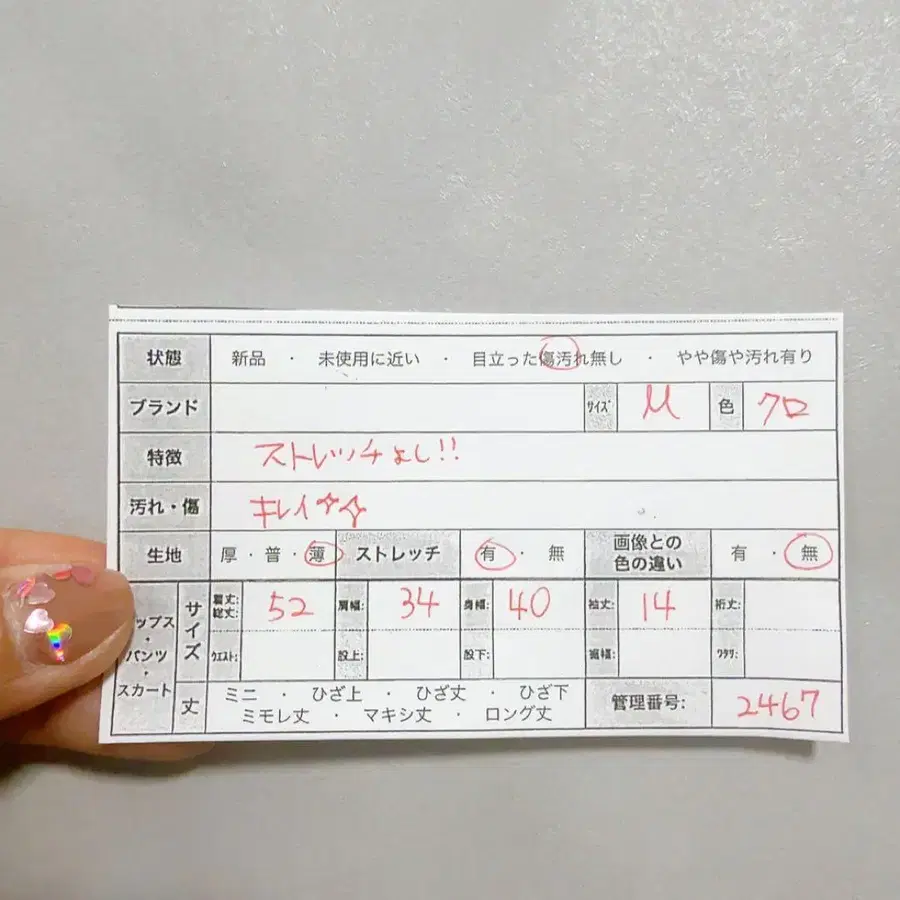 状態 新品 ・ 未使用に近い ・ 目立った傷汚れ無し ・ やや傷や汚れ有り
ブランド サイズ M 色 クロ
特徴 ストレッチよし!!
汚れ・傷 キレイ✧✧
生地 厚・普・薄 ストレッチ 有 ・ 無 画像との色の違い 有 ・ 無
ップス・パンツ・スカート サイズ 着丈:総丈: 52 肩幅: 34 身幅: 40 袖丈: 14 裄丈:
ウエスト: 股上: 股下: 裾幅: ワタリ:
丈 ミニ ・ ひざ上 ・ ひざ丈 ・ ひざ下
ミモレ丈 ・ マキシ丈 ・ ロング丈
管理番号: 2467